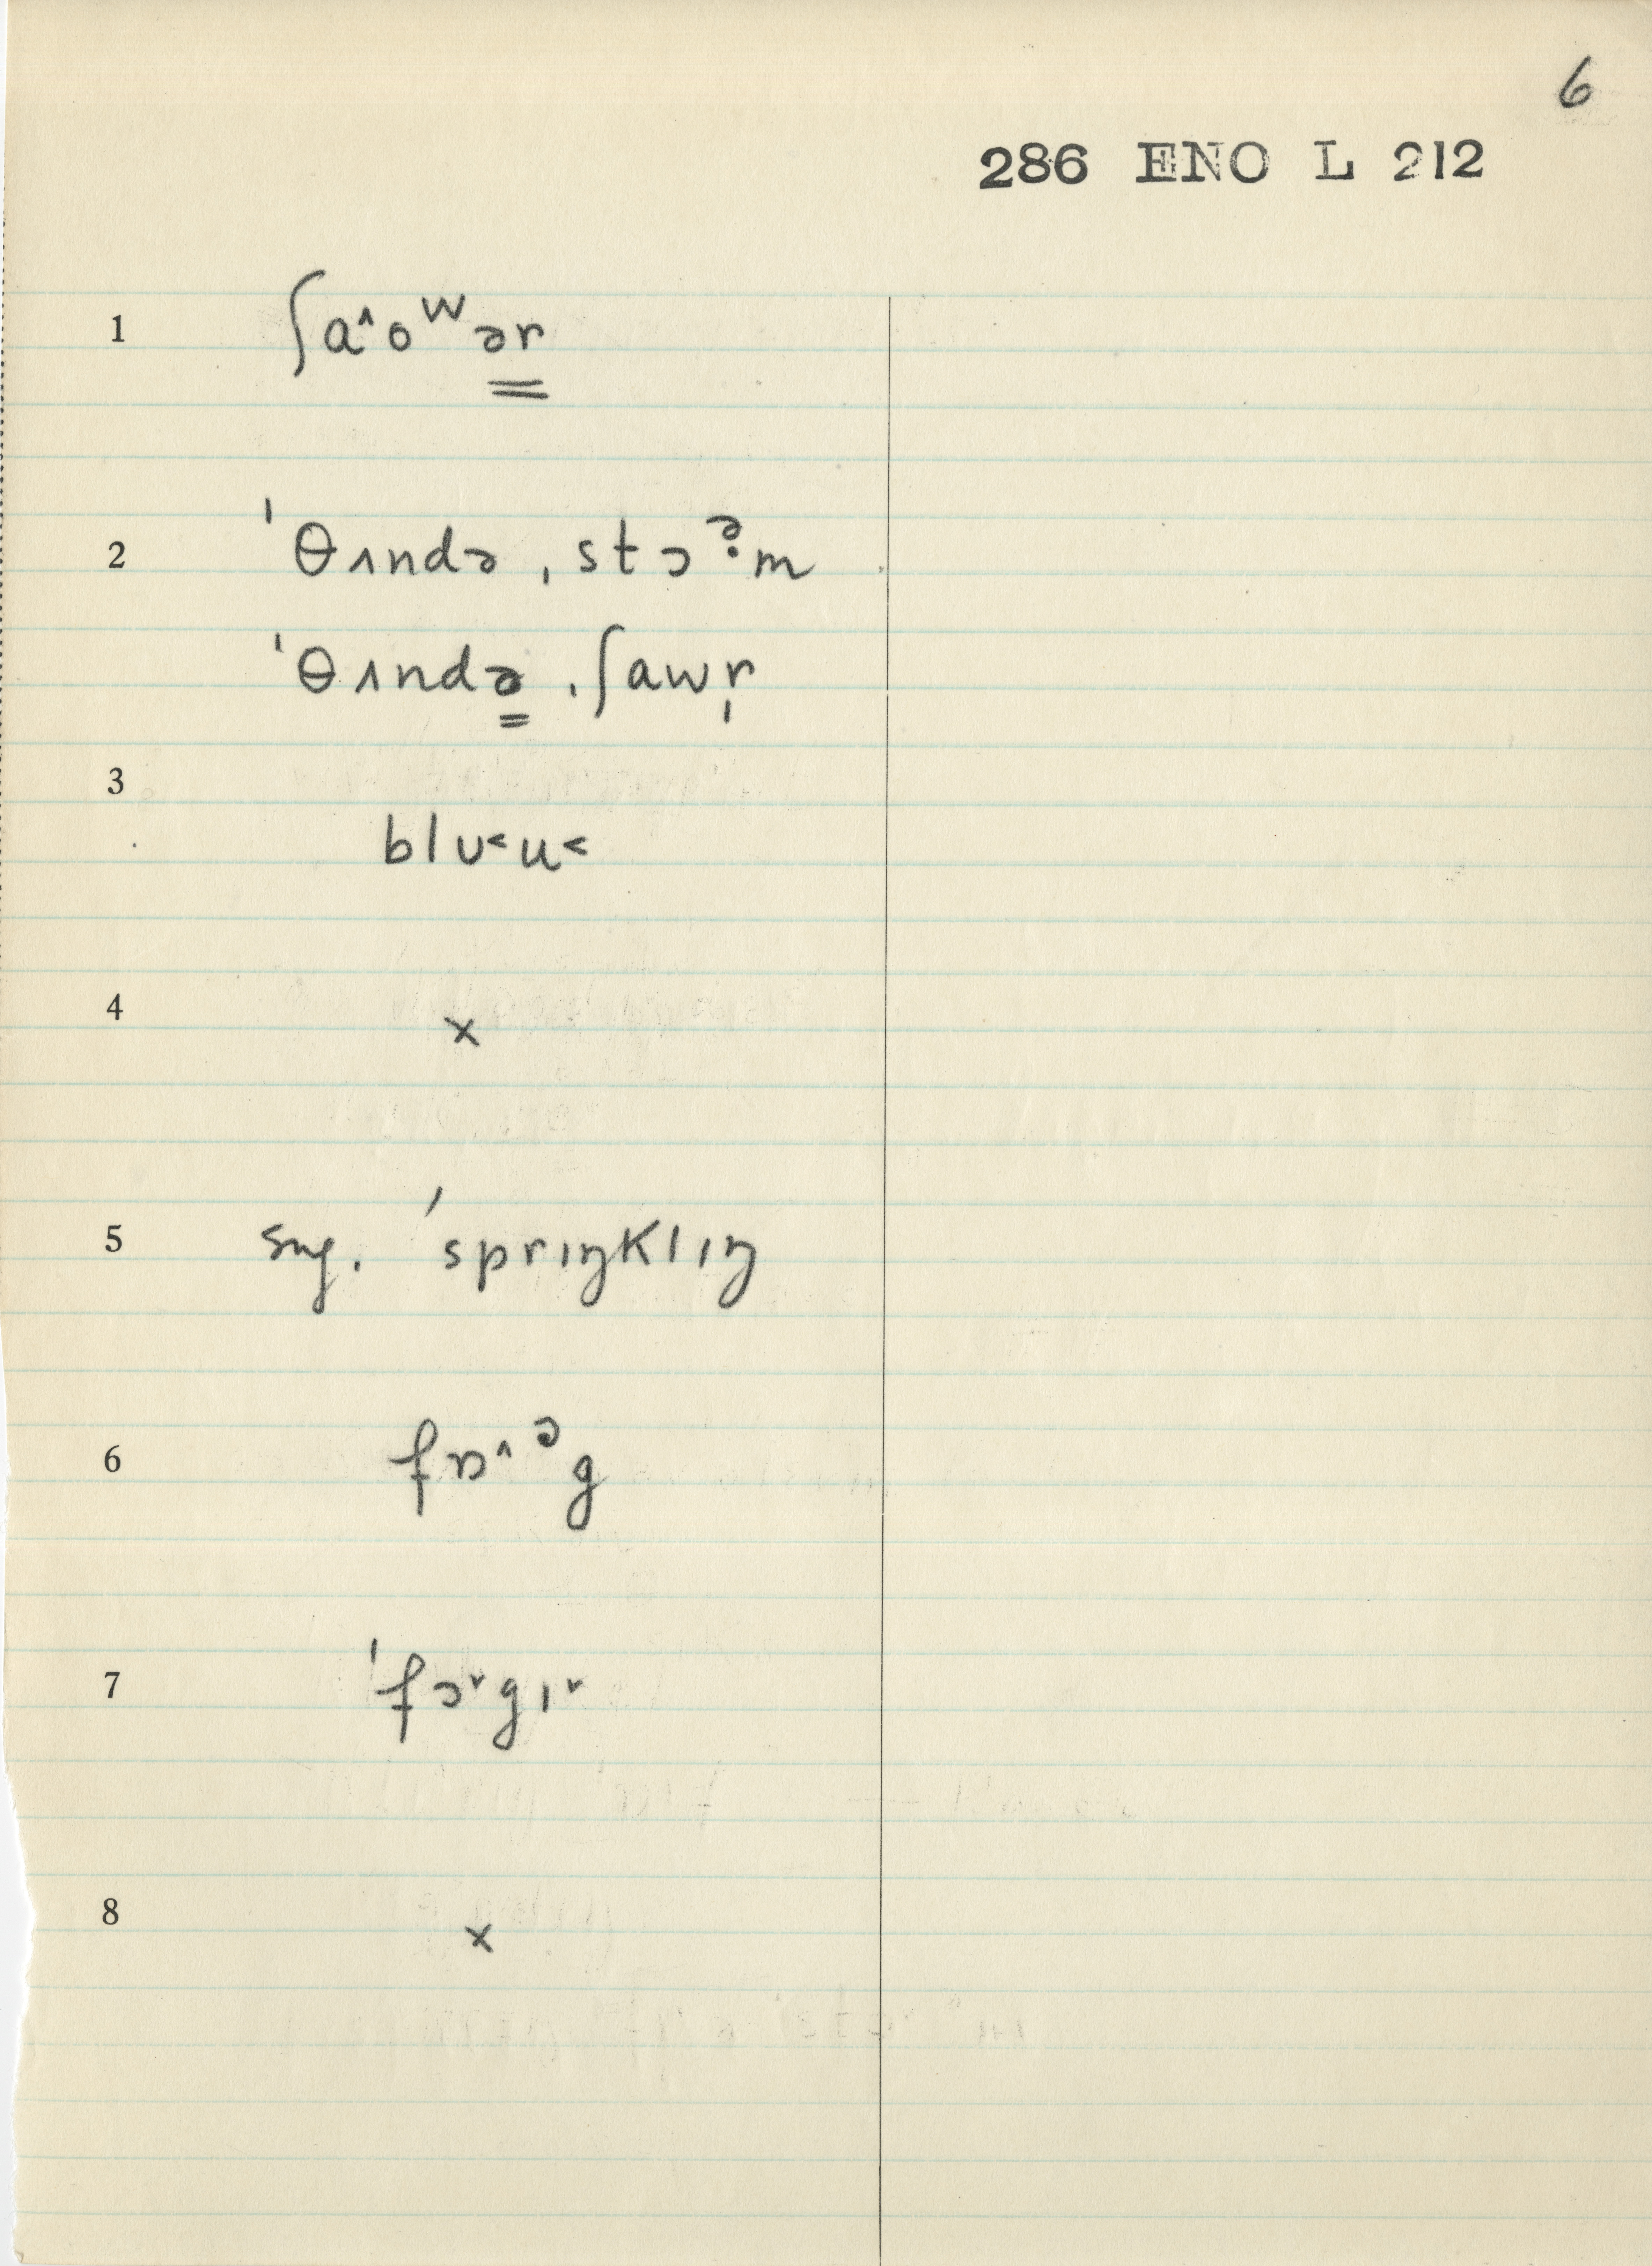 6
286 ENO L 212
1 ʃa˄oʷər
2 ˈθʌndə ˌstɔᵊ̣m
ˈθʌndə ˌʃawr̩
3
blʊ˂u˂
4 ×
5 sug. ˈsprɪŋklɪŋ
6 fɒ˄ᵊg
7 ˈfɔ˅gɪ˅
8 ×